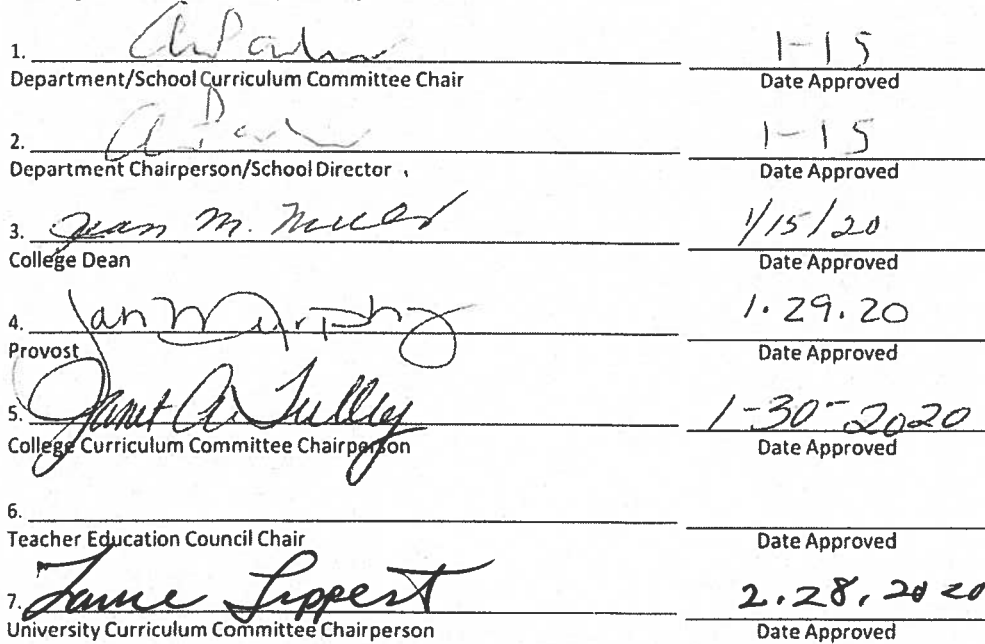 1.
1-15
Department/School Curriculum Committee Chair
Date Approved
2.
1-15
Department Chairperson/School Director
Date Approved
3. Jean M. Miller
1/15/20
College Dean
Date Approved
4. Jan Murphy
1.29.20
Provost
Date Approved
5. Janet A. Tulley
1-30-2020
College Curriculum Committee Chairperson
Date Approved
6.
Teacher Education Council Chair
Date Approved
7. Lance Lippert
2.28.2020
University Curriculum Committee Chairperson
Date Approved